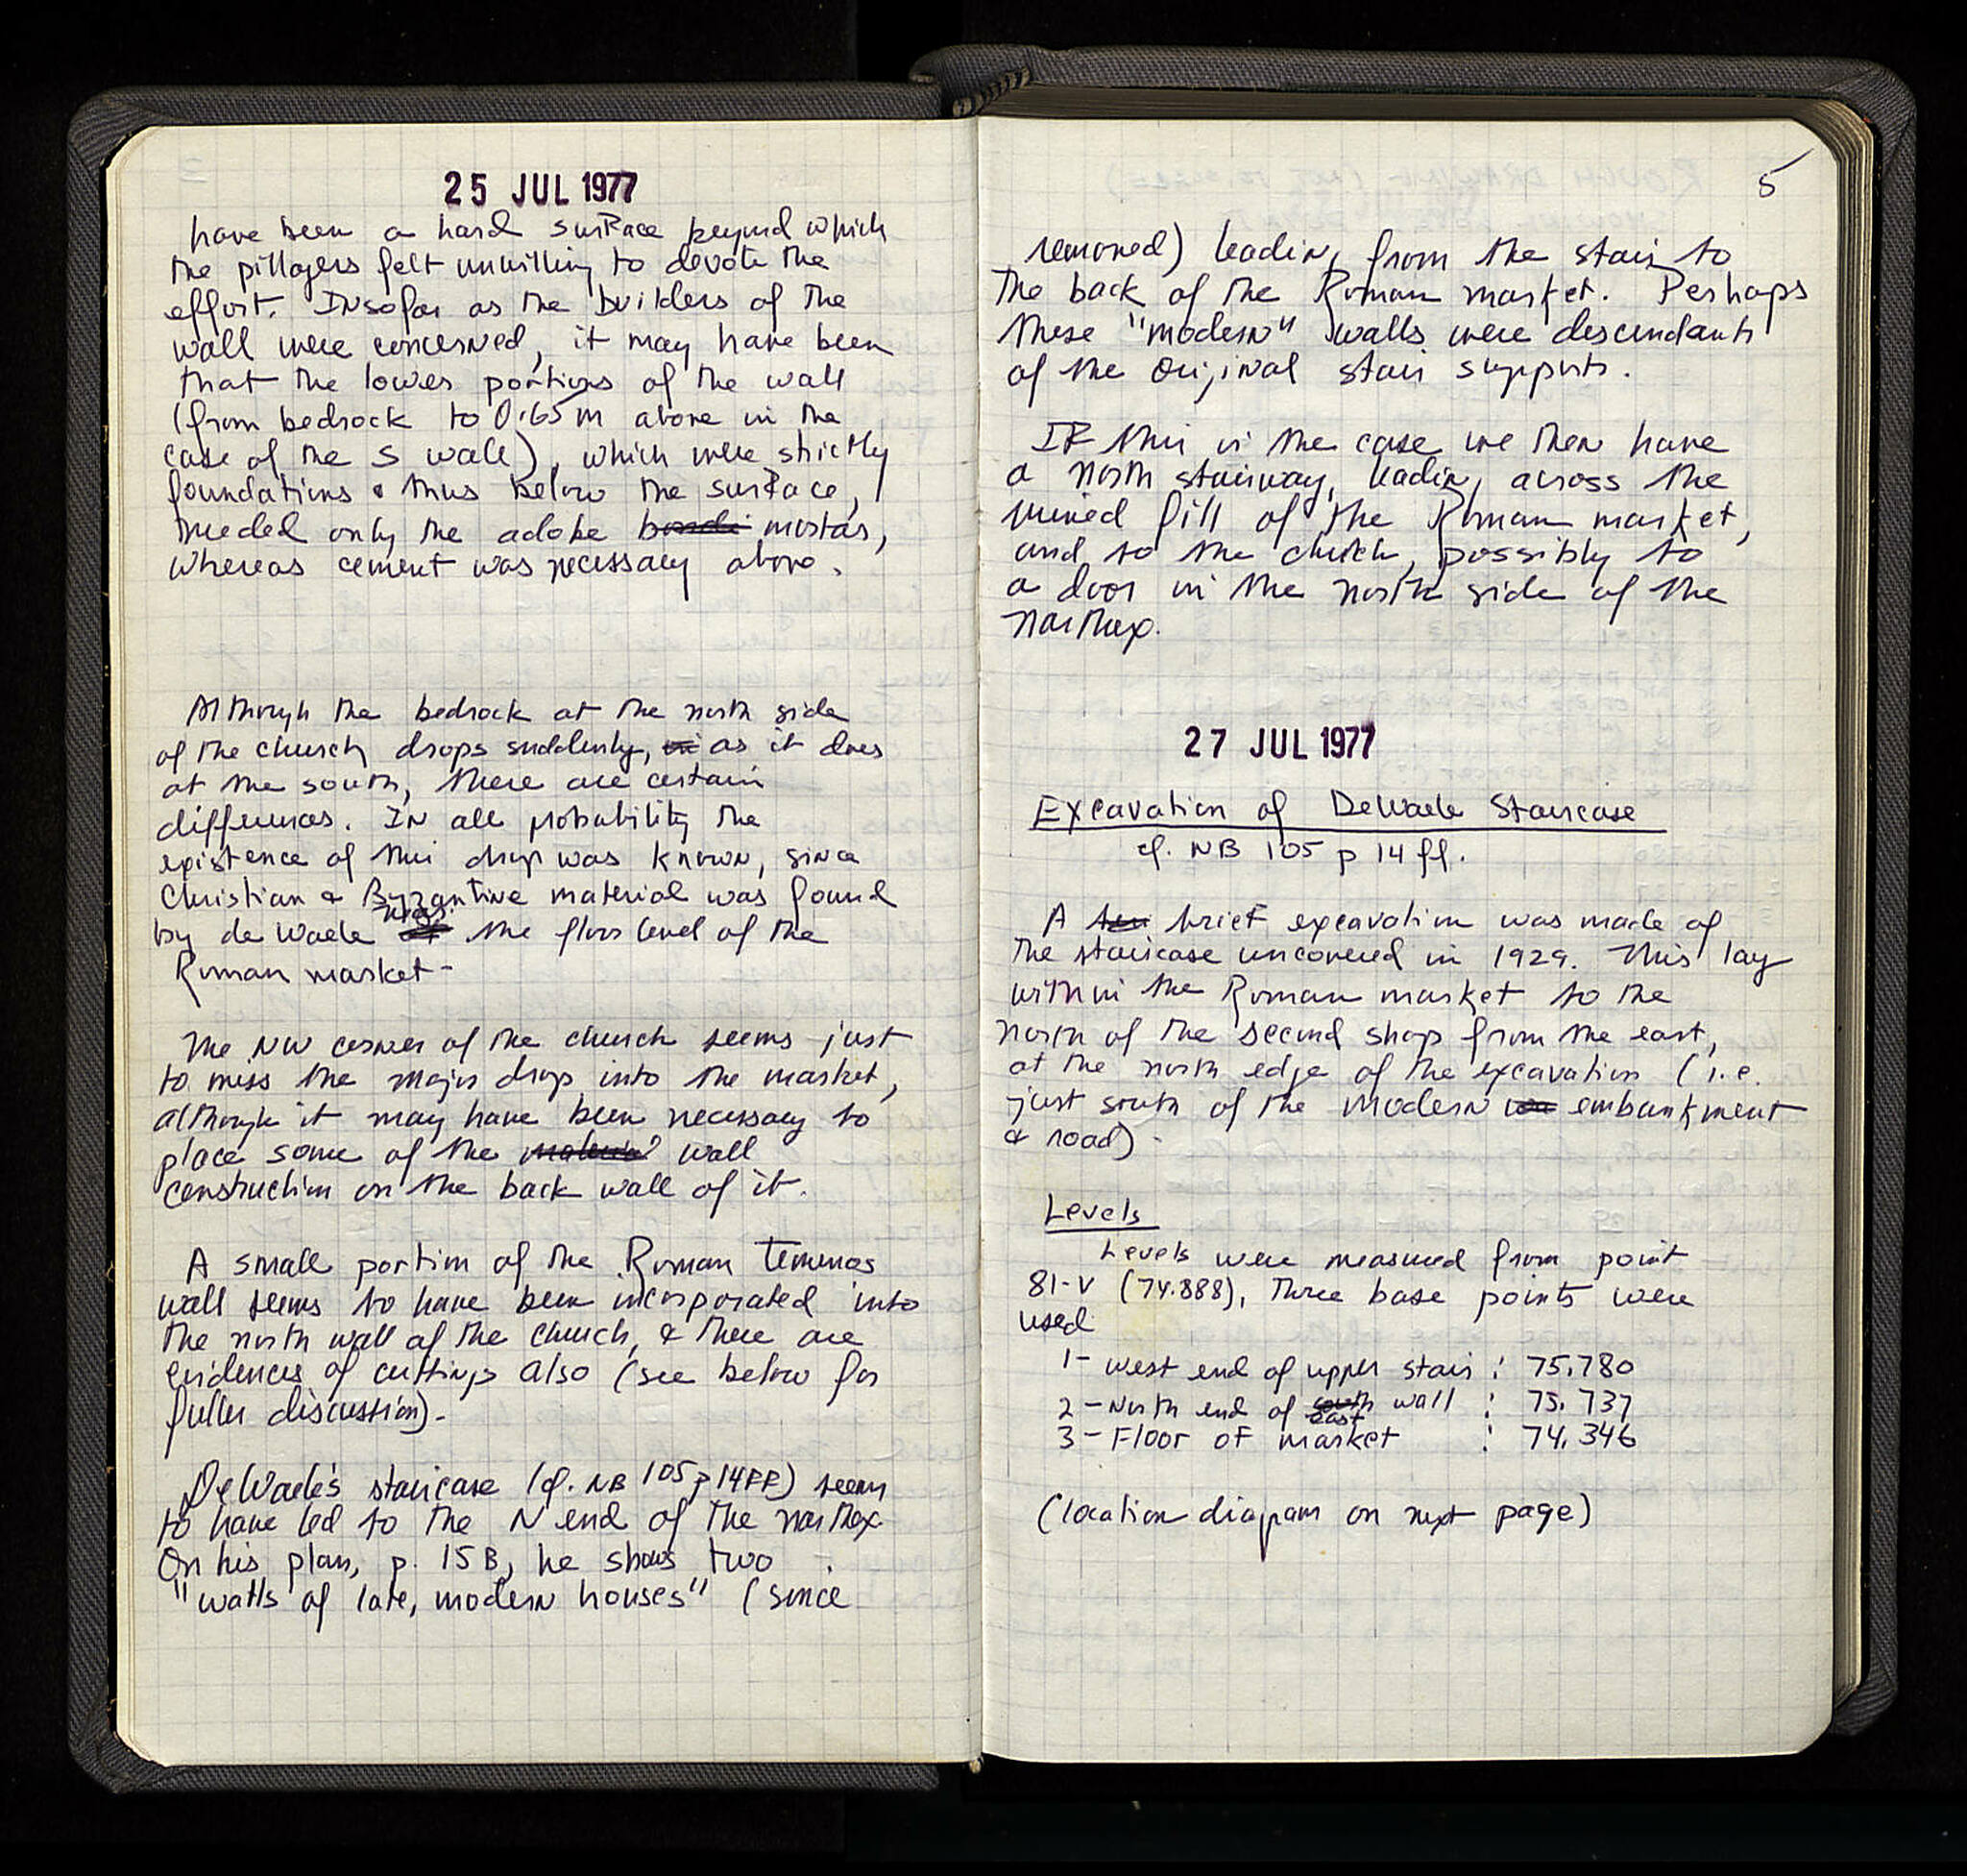 25 JUL 1977
have been a hard surface beyond which
the pillagers felt unwilling to devote the
effort. Insofar as the builders of the
wall were concerned, it may have been
that the lower portions of the wall
(from bedrock to 0.65 m above in the
case of the S wall), which were strictly
foundations & thus below the surface,
needed only the adobe mortar,
whereas cement was necessary above.
Although the bedrock at the north side
of the church drops suddenly, as it does
at the south, there are certain
differences. In all probability the
existence of this drop was known, since
Christian & Byzantine material was found
by de Waele near the floor level of the
Roman market-
The NW corner of the church seems just
to miss the major drop into the market,
although it may have been necessary to
place some of the wall
construction on the back wall of it.
A small portion of the Roman Temenos
wall seems to have been incorporated into
the north wall of the church, & there are
evidences of cuttings also (see below for
fuller discussion)-
DeWaele's staircase (cf. NB 105 p 14FF) seems
to have led to the N end of the narthex.
On his plan, p. 15B, he shows two
"walls of late, modern houses" (since
5
removed) leading from the stair to
the back of the Roman market. Perhaps
these "modern" walls were descendants
of the original stair supports.
If this is the case we then have
a north stairway, leading across the
ruined fill of the Roman market,
and to the church, possibly to
a door in the north side of the
narthex.
27 JUL 1977
Excavation of DeWaele Staircase
cf. NB 105 p 14 ff.
A brief excavation was made of
the staircase uncovered in 1929. This lay
within the Roman market to the
north of the second shop from the east,
at the north edge of the excavation (i.e.
just south of the modern embankment
& road)-
Levels
Levels were measured from point
81-V (74.888), Three base points were
used
1- West end of upper stair : 75.780
2- North end of east wall : 75.737
3- Floor of market : 74.346
(location diagram on next page)